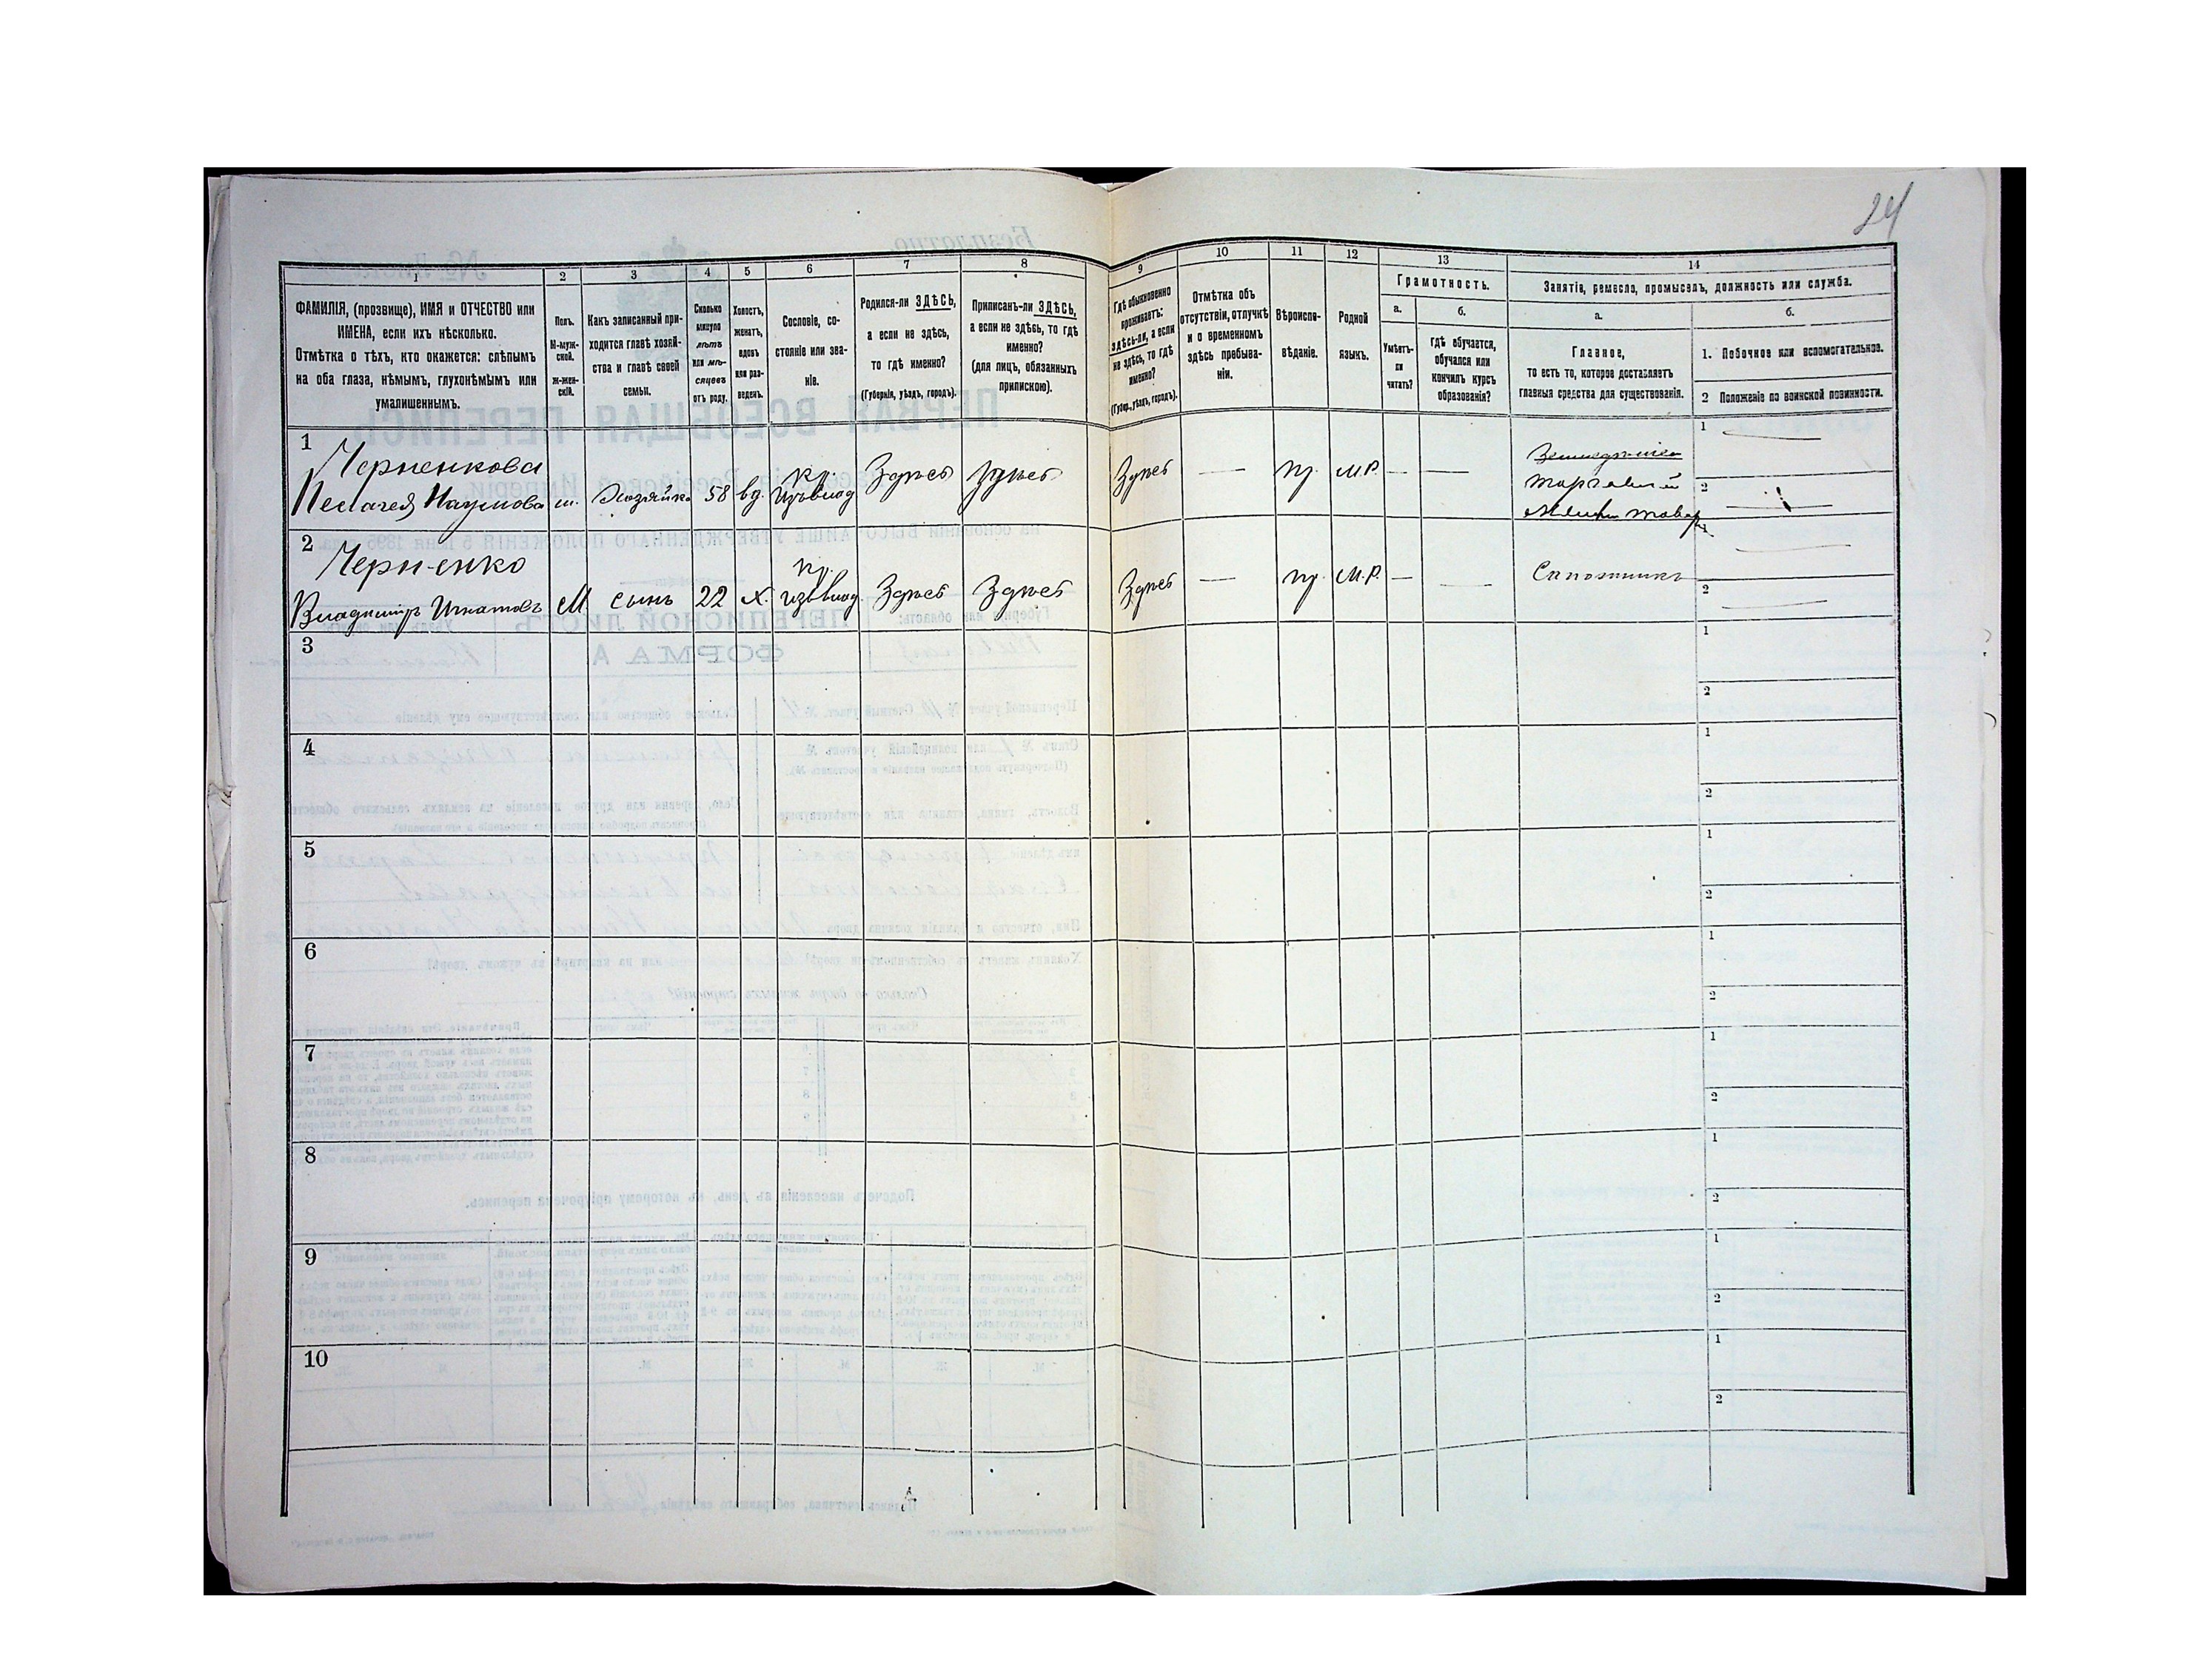 24
1
2
3
4
5
6
7
8
9
10
11
12
13
14
ФАМИЛІЯ, (прозвище), ИМЯ и ОТЧЕСТВО или
ИМЕНА, если ихъ нѣсколько.
Отмѣтка о тѣхъ, кто окажется: слѣпымъ
на оба глаза, нѣмымъ, глухонѣмымъ или
умалишеннымъ.
Полъ.
М-муж-
ской.
Ж-жен-
скій.
Какъ записанный при-
ходится главѣ хозяй-
ства и главѣ своей
семьи.
Сколько
минуло
лѣтъ
или мѣ-
сяцевъ
отъ роду.
Холостъ,
женатъ,
вдовъ
или раз-
веденъ.
Сословіе, со-
стояніе или зва-
ніе.
Родился-ли ЗДѢСЬ,
а если не здѣсь,
то гдѣ именно?
(Губернія, уѣздъ, городъ).
Приписанъ-ли ЗДѢСЬ,
а если не здѣсь, то гдѣ
именно?
(для лицъ, обязанныхъ
припискою).
Гдѣ обыкновенно
проживаетъ:
здѣсь-ли, а если
не здѣсь, то гдѣ
именно?
(Губер., уѣздъ, городъ).
Отмѣтка объ
отсутствіи, отлучкѣ
и о временномъ
здѣсь пребыва-
ніи.
Вѣроиспо-
вѣданіе.
Родной
языкъ.
Грамотность.
а.
Умѣетъ-
ли
читать?
б.
гдѣ обучается,
обучался или
кончилъ курсъ
образованія?
Занятіе, ремесло, промыселъ, должность или служба.
а.
Главное,
то есть то, которое доставляетъ
главныя средства для существованія.
б.
1. Побочное или вспомогательное.
2 Положеніе по воинской повинности.
1
Черненкова
Пелагея Наумова
Хозяйка
58
вд.
кр.
изъ влад
Здѣсь
Здѣсь
Здѣсь
—
пр.
М.Р.
—
—
Земледѣліе
Торговлей
товар
1
2
2
Черненко
Владимиръ Игнатовъ
М
сынъ
22
х.
кр.
изъ влад.
Здѣсь
Здѣсь
Здѣсь
—
пр.
М.Р.
—
—
Сапожникъ
1
2
3
1
2
4
1
2
5
1
2
6
1
2
7
1
2
8
1
2
9
1
2
10
1
2